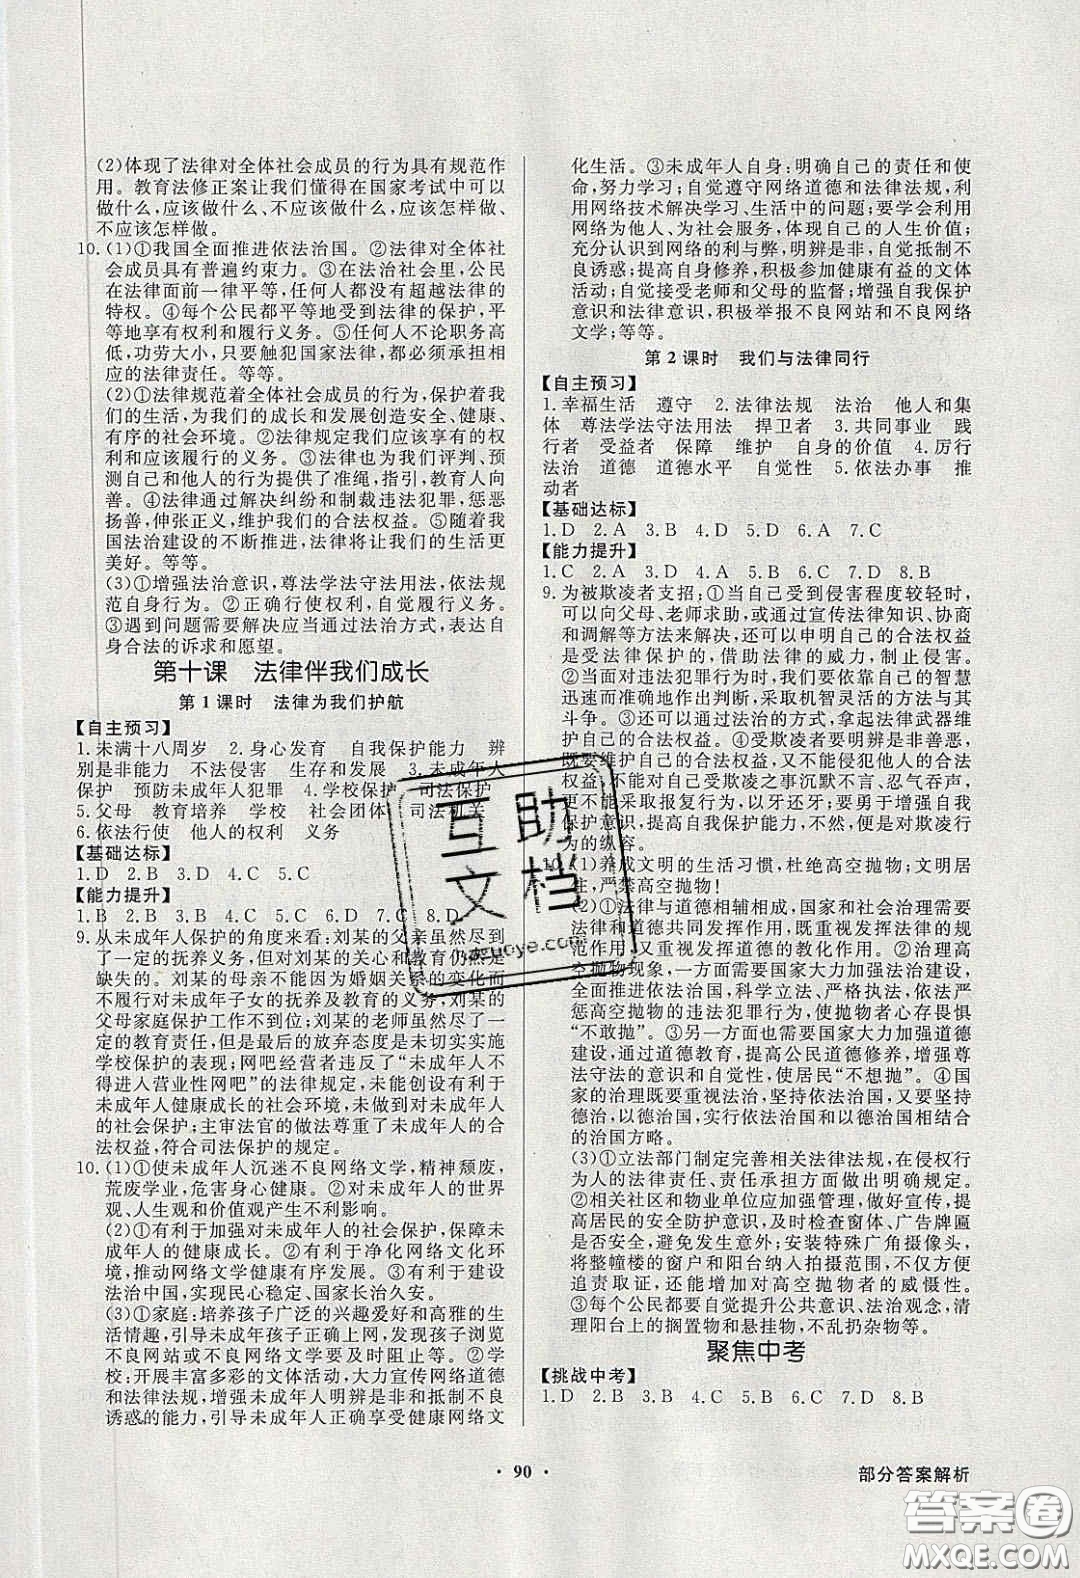 (2)体现了法律对全体社会成员的行为具有规范作
用。教育法修正案让我们懂得在国家考试中可以
做什么,应该做什么、不应该做什么,应该怎样做、
不应该怎样做。
10.(1)①我国全面推进依法治国。②法律对全体社
会成员具有普遍约束力。③在法治社会里,公民
在法律面前一律平等,任何人都没有超越法律的
特权。④每个公民都平等地受到法律的保护,平
等地享有权利和履行义务。⑤任何人不论职务高
低,功劳大小,只要触犯国家法律,都必须承担相
应的法律责任。等等。
(2)①法律规范着全体社会成员的行为,保护着我
们的生活,为我们的成长和发展创造安全、健康、
有序的社会环境。②法律规定我们应该享有的权
利和应该履行的义务。③法律也为我们评判、预
测自己和他人的行为提供了准绳,指引,教育人向
善。④法律通过解决纠纷和制裁违法犯罪,惩恶
扬善,伸张正义,维护我们的合法权益。⑤随着我
国法治建设的不断推进,法律将让我们的生活更
美好。等等。
(3)①增强法治意识,尊法学法守法用法,依法规
范自身行为。②正确行使权利,自觉履行义务。
③遇到问题需要解决应当通过法治方式,表达自
身合法的诉求和愿望。
第十课 法律伴我们成长
第1课时 法律为我们护航
【自主预习】
1.未满十八周岁 2.身心发育 自我保护能力 辨
别是非能力 不法侵害 生存和发展 3.未成年人
保护 预防未成年人犯罪 4.学校保护 司法保护
5.父母 教育培养 学校 社会团体 司法机关
6.依法行使 他人的权利 义务
【基础达标】
1.D 2.B 3.D 4.C 5.C
【能力提升】
1.B 2.B 3.B 4.C 5.D 6.B 7.C 8.D
9.从未成年人保护的角度来看:刘某的父亲虽然尽到
了一定的抚养义务,但对刘某的关心和教育仍然是
缺失的。刘某的母亲不能因为婚姻关系的变化而
不履行对未成年子女的抚养及教育的义务,刘某的
父母家庭保护工作不到位;刘某的老师虽然尽了一
定的教育责任,但是最后的放弃态度是未切实实施
学校保护的表现;网吧经营者违反了“未成年人不
得进入营业性网吧”的法律规定,未能创设有利于
未成年人健康成长的社会环境,未做到对未成年人
的社会保护;主审法官的做法尊重了未成年人的合
法权益,符合司法保护的规定。
10.(1)①使未成年人沉迷不良网络文学,精神颓废,
荒废学业,危害身心健康。②对未成年人的世界
观、人生观和价值观产生不利影响。
(2)①有利于加强对未成年人的社会保护,保障未
成年人的健康成长。②有利于净化网络文化环
境,推动网络文学健康有序发展。③有利于建设
法治中国,实现民心稳定、国家长治久安。
(3)①家庭:培养孩子广泛的兴趣爱好和高雅的生
活情趣,引导未成年孩子正确上网,发现孩子浏览
不良网站或不良网络文学要及时阻止等。②学
校:开展丰富多彩的文体活动,大力宣传网络道德
和法律法规,增强未成年人明辨是非和抵制不良
诱惑的能力,引导未成年人正确享受健康网络文
化生活。③未成年人自身:明确自己的责任和使
命,努力学习;自觉遵守网络道德和法律法规,利
用网络技术解决学习、生活中的问题;要学会利用
网络为他人、为社会服务,体现自己的人生价值;
充分认识到网络的利与弊,明辨是非,自觉抵制不
良诱惑;提高自身修养,积极参加健康有益的文体
活动;自觉接受老师和父母的监督;增强自我保护
意识和法律意识,积极举报不良网站和不良网络
文学;等等。
第2课时 我们与法律同行
【自主预习】
1.幸福生活 遵守 2.法律法规 法治 他人和集
体 尊法学法守法用法 捍卫者 3.共同事业 践
行者 受益者 保障 维护 自身的价值 4.厉行
法治 道德 道德水平 自觉性 5.依法办事 推
动者
【基础达标】
1.D 2.A 3.B 4.D 5.D 6.A 7.C
【能力提升】
1.C 2.A 3.D 4.B 5.B 6.C 7.D 8.B
9.为被欺凌者支招:①当自己受到侵害程度较轻时,
可以向父母、老师求助,或通过宣传法律知识、协商
和调解等方法来解决,还可以申明自己的合法权益
是受法律保护的,借助法律的威力,制止侵害行为。
②当面对违法侵害时,我们要依靠自己的智慧
迅速而准确地作出判断,采取机智灵活的方法与其
斗争。③还可以通过法治的方式,拿起法律武器维
护自己的合法权益。④受欺凌者要明辨是非善恶,
既要维护自己的合法权益,又不能侵犯他人的合法
权益,不能对受欺凌之事沉默不言、忍气吞声,
更不能采取报复行为,以牙还牙;要勇于增强自我
保护意识,提高自我保护能力,不然,便是对欺凌行
为的纵容。
10.(1)养成文明的生活习惯,杜绝高空抛物;文明居
住,严禁高空抛物!
(2)①法律与道德相辅相成,国家和社会治理需要
法律和道德共同发挥作用,既重视发挥法律的规范
作用,又重视发挥道德的教化作用。②治理高
空抛物现象,一方面需要国家大力加强法治建设,
全面推进依法治国,科学立法、严格执法,依法严
惩高空抛物的违法行为,使抛物者心存畏惧
“不敢抛”。③另一方面也需要国家大力加强道德
建设,通过道德教育,提高公民道德修养,增强尊
法守法的意识和自觉性,使居民“不想抛”。④国
家的治理既要重视法治,坚持依法治国,又要坚持
德治,以德治国,实行依法治国和以德治国相结合
的治国方略。
(3)①立法部门制定完善相关法律法规,在侵权行
为人的法律责任、责任承担等方面做出明确规定。
②相关社区和物业单位应加强管理,做好宣传,提
高居民的安全防护意识,及时检查窗体、广告牌匾
是否安全,避免发生意外;安装特殊广角摄像头,
将整幢楼的窗户和阳台纳入拍摄范围,不仅方便
追责取证,还能增加对高空抛物者的威慑性。
③每个公民都要自觉提升公共意识、法治观念,清
理阳台上的搁置物和悬挂物,不乱扔杂物等。
聚焦中考
【挑战中考】
1.D 2.B 3.B 4.C 5.C 6.C 7.D 8.B
· 90 ·
部分答案解析
互助
文档
答案圈
MXQE.COM